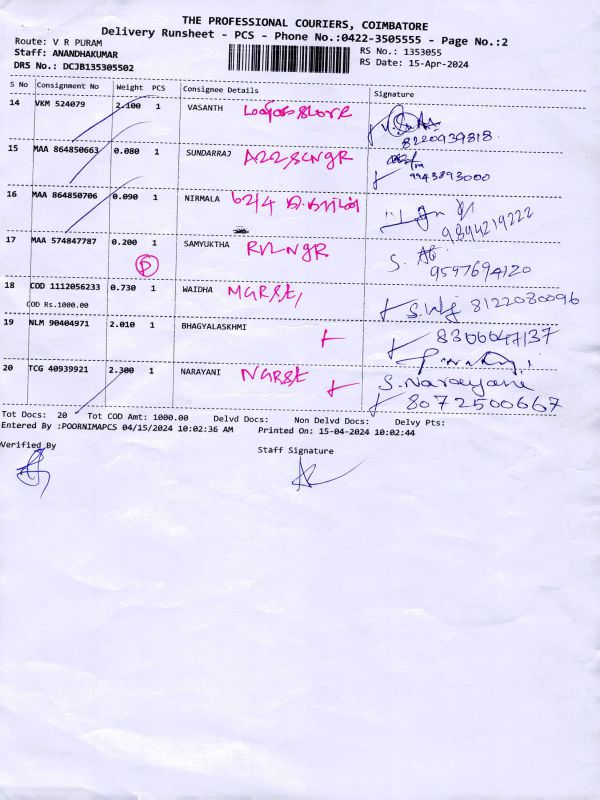 THE PROFESSIONAL COURIERS, COIMBATORE
Delivery Runsheet - PCS - Phone No.:0422-3505555 - Page No.:2
Route: V R PURAM
Staff: ANANDHAKUMAR
DRS No.: DCJB135305502
RS No.: 1353055
RS Date: 15-Apr-2024
S No Consignment No Weight PCS Consignee Details Signature
14 VKM 524079 2.100 1 VASANTH
8220939818
15 MAA 864850663 0.080 1 SUNDARRAJ
9943893000
16 MAA 864850706 0.090 1 NIRMALA 62/4
9894219222
17 MAA 574847787 0.200 1 SAMYUKTHA
P
9597694120
18 COD 1112056233 0.730 1 WAIDHA MGRSt, 8122080096
COD Rs.1000.00
19 NLM 90404971 2.010 1 BHAGYALASKHMI 8306647137
20 TCG 40939921 2.300 1 NARAYANI NGRSt S.Narayani
8072500667
Tot Docs: 20 Tot COD Amt: 1000.00 Delvd Docs: Non Delvd Docs: Delvy Pts:
Entered By :POORNIMAPCS 04/15/2024 10:02:36 AM Printed On: 15-04-2024 10:02:44
Verified By
Staff Signature